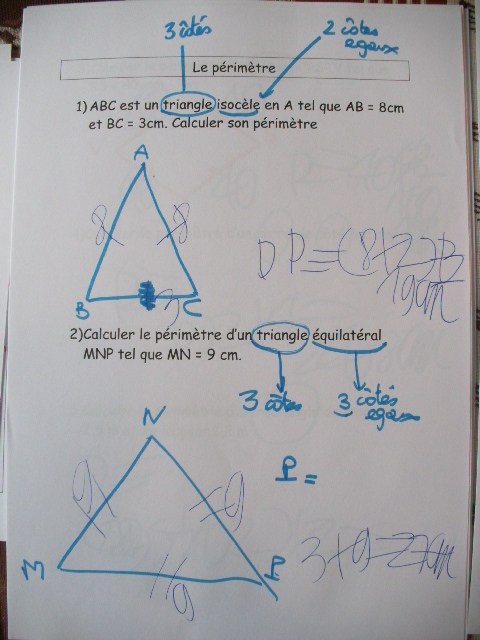 3 côtés
2 côtes
egaux
Le périmètre
1) ABC est un triangle isocèle en A tel que AB = 8cm
et BC = 3cm. Calculer son périmètre
A
8 8
B 3 C
P=(8+2)+3
19cm
2)Calculer le périmètre d'un triangle équilatéral
MNP tel que MN = 9 cm.
3 côtes
3 côtés
egaux
N
P =
9 9
M P
9
3+9=27cm